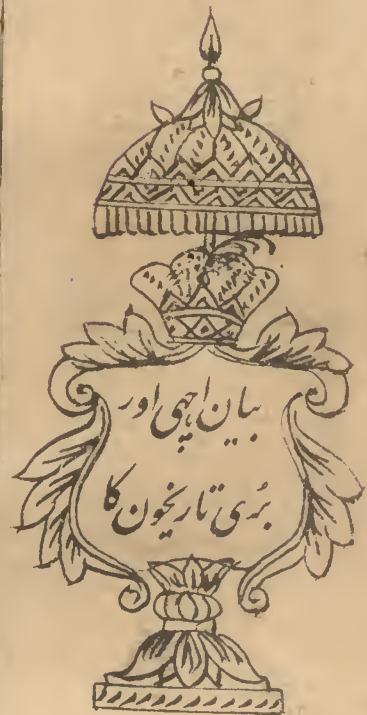 بیان اچہی اور
بُری تاریخون کا